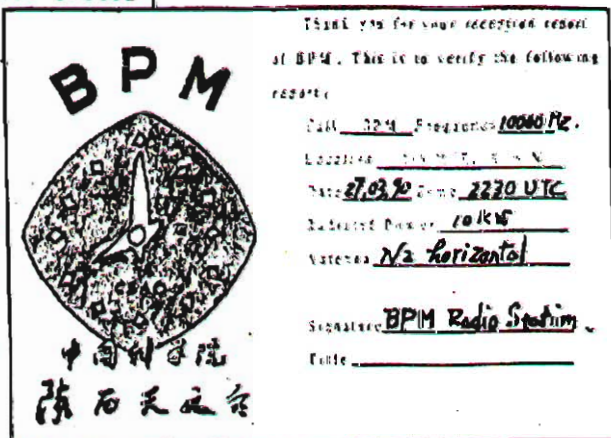 BPM
中国科学院
Thank you for your reception report
of BPM. This is to verify the following
report:
Call BPM Frequence 10000 Hz.
Location
Date 27,03,90 Time 2230 UTC
Radiated Power 10 kW
Antenna horizontal
Signature BPM Radio Station
Title